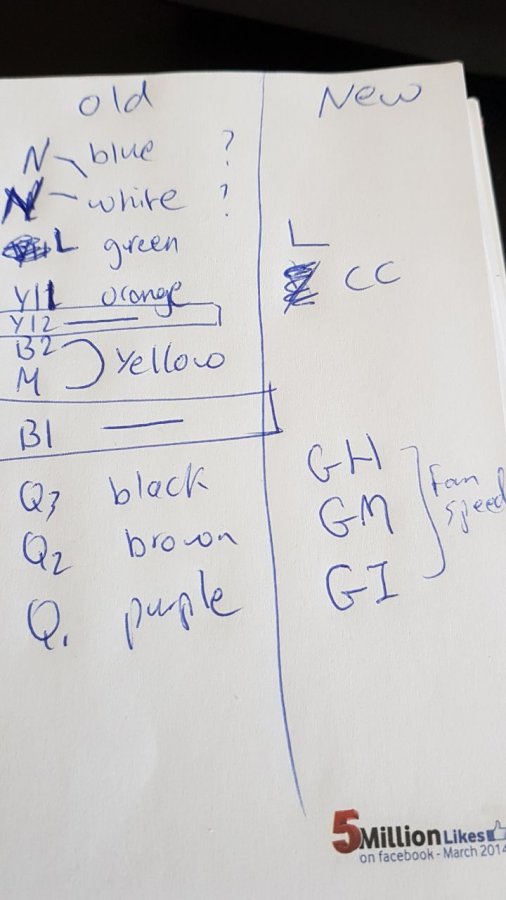 old
New
N blue ?
N white ?
L green
L
Y11 orange
CC
Y12
B2
M
Yellow
B1
Q3 black
GH
Q2 brown
GM
Q1 purple
GI
Fan
speed
5 Million Likes
on facebook - March 2014